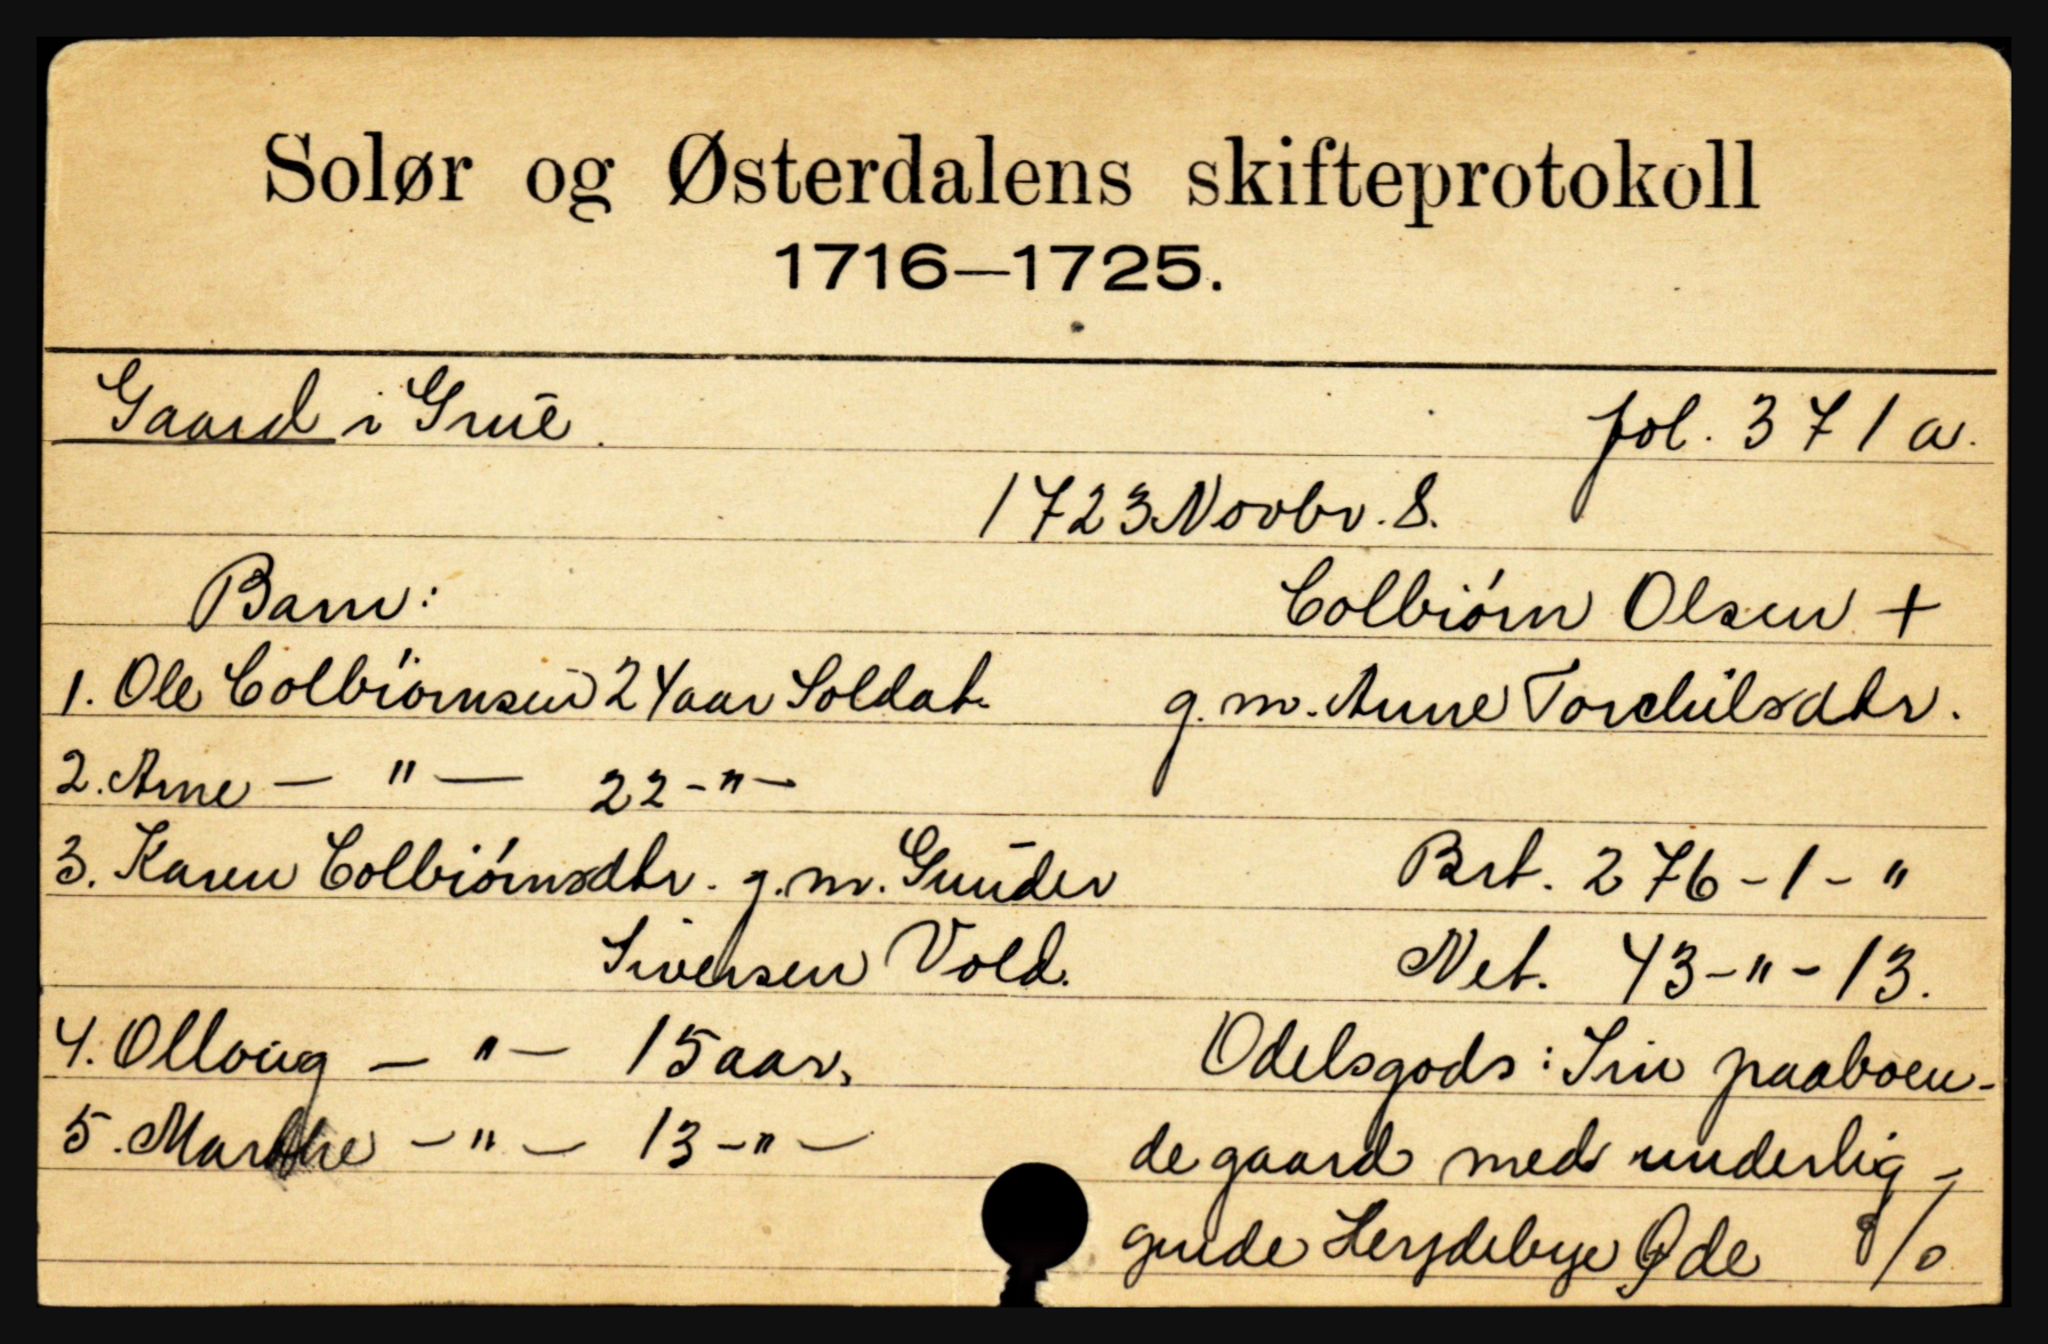 Solør og Østerdalens skifteprotokoll
1716—1725.
Gaard i Grue. fol. 371 a.
1723 Novbr. 8.
Barn: Colbiórn Olsen +
1. Ole Colbiörnsen 24 aar Soldat. g. m. Anne Torchilsdtr.
2. Arne — " — 22 - " -
3. Karen Colbiórnsdtr. g. m. Gunder Brt. 276 - 1 - "
Siversen Vold. Net. 43 - " - 13.
4. Olloug — " — 15 aar. Odelsgods: Sin paaboen-
5. Marthe - " - 13 - " - de gaard med underlig-
gende Øde %